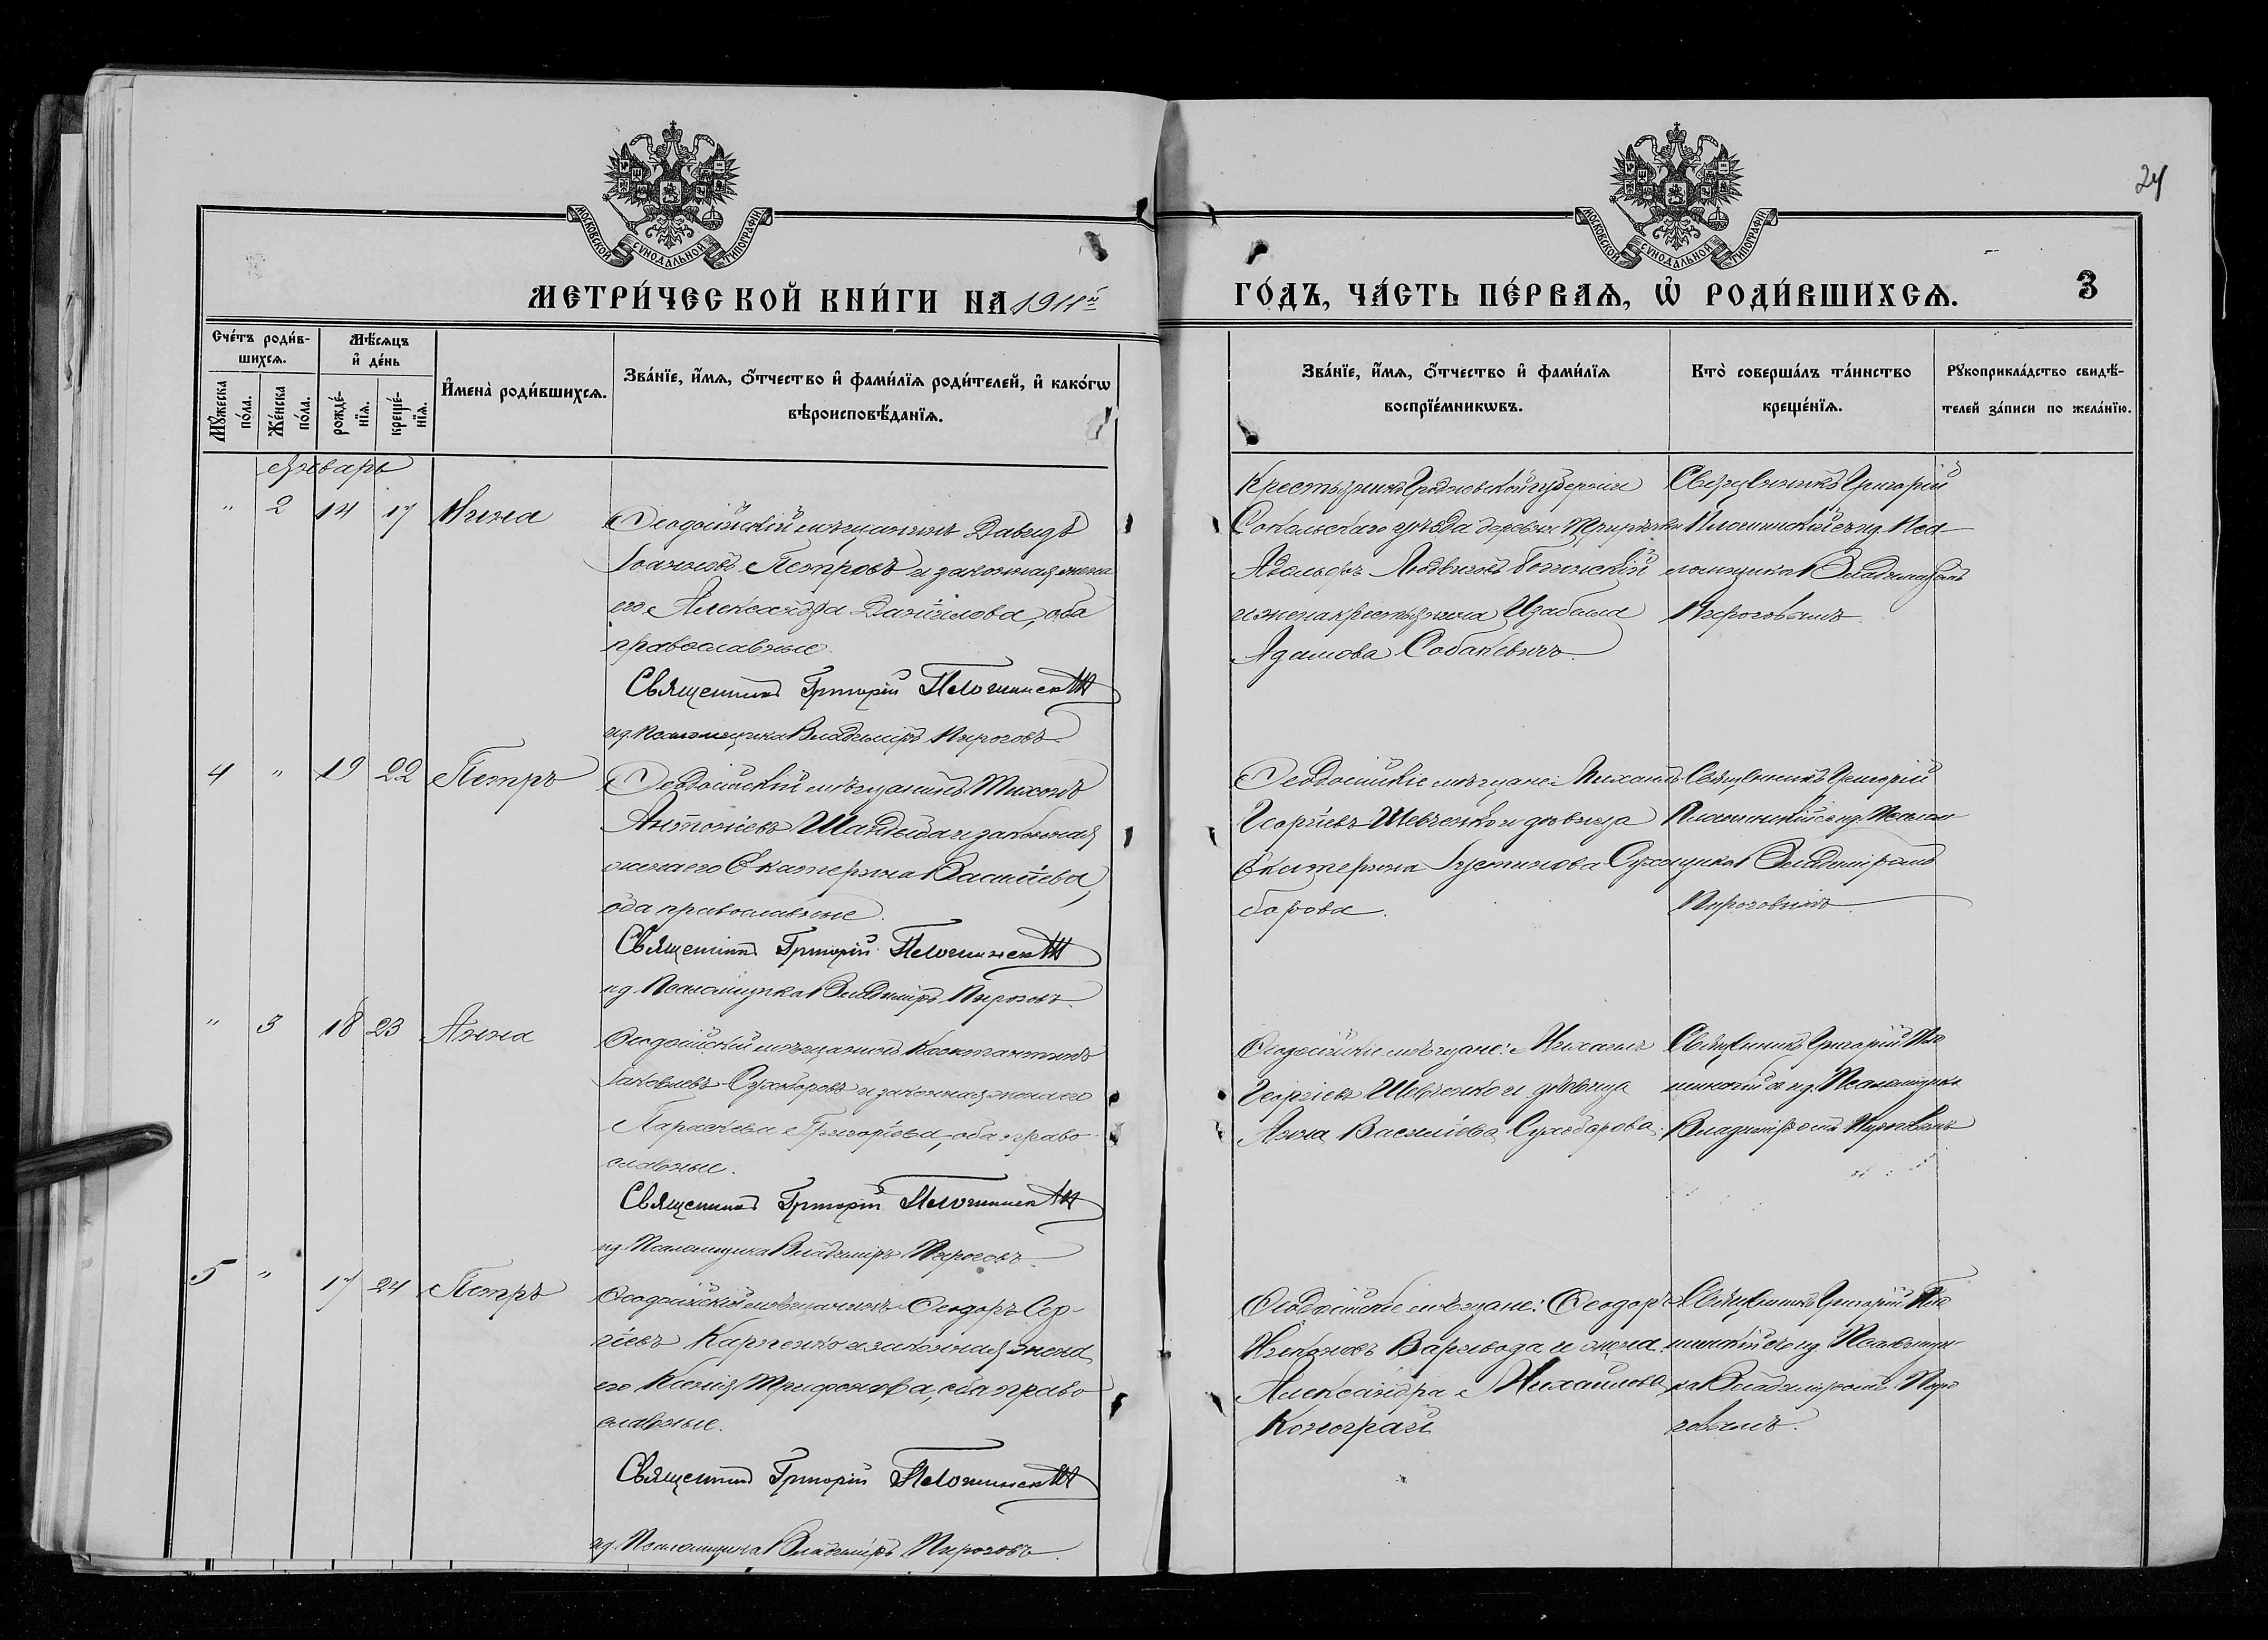 24
МОСКОВСКОЙ СѴНОДАЛЬНОЙ ТИПОГРАФІИ
МОСКОВСКОЙ СѴНОДАЛЬНОЙ ТИПОГРАФІИ
МЕТРИ́ЧЕСКОЙ КНИ́ГИ НА 1911й
ГО́ДЪ, ЧА́СТЬ ПЕ́РВАѦ, Ѡ҆ РОДИ́ВШИХСѦ.
3
Сче́тъ роди́в-
шихсѧ.
Мѣ́сѧцъ
и҆ де́нь
Мꙋ́жеска по́ла.
Же́нска по́ла.
рожде́-нїѧ.
креще́-нїѧ.
И҆мена̀ роди́вшихсѧ.
Зва́нїе, и҆́мѧ, ѻ҆́тчество и҆ фами́лїѧ роди́телей, и҆ како́гѡ
вѣроисповѣ́данїѧ.
Зва́нїе, и҆́мѧ, ѻ҆́тчество и҆ фами́лїѧ
воспрїе́мникѡвъ.
Кто̀ соверша́лъ та́инство
креще́нїѧ.
Рꙋкоприкла́дство свидѣ́-
телей за́писи по жела́нїю.
Январь
" 2 14 17 Нина
Ѳеодосійскій мѣщанинъ Давидъ
Іоанновъ Петровъ и законная жена
его Александра Даніилова, оба
православные.
Священникъ Григорій Плошинскій
и.д. Псаломщика Владиміръ Пироговъ.
Крестьянинъ Гродненской губерніи
Сокольскаго уѣзда деревни
Адольфъ Людвиговъ
и жена крестьянина
Адамова Собакевичъ.
Священникъ Григорій
Плошинскій съ и.д. Пса-
ломщика Владиміромъ
Пироговымъ.
4 " 19 22 Петръ
Ѳеодосійскій мѣщанинъ Тихонъ
Антоніевъ Шандыба и законная
жена его Екатерина Василіева,
оба православные.
Священникъ Григорій Плошинскій
и.д. Псаломщика Владиміръ Пироговъ.
Ѳеодосійскіе мѣщане: Михаилъ
Георгіевъ Шевченко и дѣвица
Екатерина Іустинова Сухо-
борова.
Священникъ Григорій
Плошинскій съ и.д. Псалом-
щика Владиміромъ
Пироговымъ
" 3 18 23 Анна
Ѳеодосійскій мѣщанинъ Константинъ
Іаковлевъ Сухоборовъ и законная жена его
Параскева Григоріева, оба право-
славные.
Священникъ Григорій Плошинскій
и.д. Псаломщика Владиміръ Пироговъ.
Ѳеодосійскіе мѣщане: Михаилъ
Георгіевъ Шевченко и дѣвица
Анна Василіева Сухоборова.
Священникъ Григорій Пло-
шинскій съ и.д. Псаломщика
Владиміромъ Пироговымъ
5 " 17 24 Петръ
Ѳеодосійскій мѣщанинъ Ѳеодоръ Сер-
гіевъ Карпенко и законная жена
его Ксенія Трифонова, оба право-
славные.
Священникъ Григорій Плошинскій
и.д. Псаломщика Владиміръ Пироговъ.
Ѳеодосійскіе мѣщане: Ѳеодоръ
Никоновъ Варивода и жена
Александра Михайлова
Конограй
Священникъ Григорій Пло-
шинскій съ и.д. Псаломщи-
ка Владиміромъ Пиро-
говымъ.